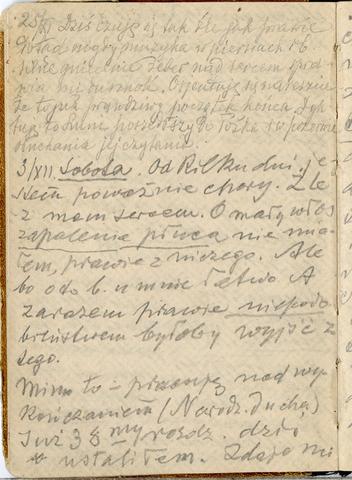 25/XI Dziś czuję się tak źle jak prawie
nigdy muzyka w piersiach i b.
silne gniecenie żeber nad sercem
Orientuję się nareszcie
że to jest prawdziwy początek końca.
to położyłszy się do łóżka
słuchania jej czytania.
3/XII. Sobota. Od kilku dni je-
stem poważnie chory. Źle
z mem sercem. O mały włos
zapalenia płuca nie mia-
łem, prawie z niczego. Ale
bo o to b. u mnie łatwo A
zarazem prawie niepodo-
bieństwem byłoby wyjść z
tego.
Mimo to – pracuję nad wy-
kończaniem (Narodz. ducha)
Już 38 my rozdz. dziś
ustaliłem. Zdaje mi